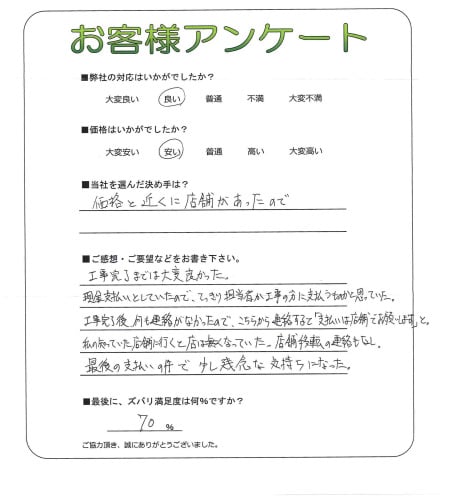 お客様アンケート
■弊社の対応はいかがでしたか？
大変良い 良い 普通 不満 大変不満
■価格はいかがでしたか？
大変安い 安い 普通 高い 大変高い
■当社を選んだ決め手は？
価格と近くに店舗があったので
■ご感想・ご要望などをお書き下さい。
工事完了までは大変良かった。
現金支払いとしていたので、てっきり担当者か工事の方に支払うものかと思っていた。
工事完了後、何も連絡がなかったので、こちらから連絡すると「支払いは店舗でお願いします」と。
私の知っていた店舗に行くと店は無くなっていた。店舗移転の連絡もなし。
最後の支払いの件で少し残念な気持ちになった。
■最後に、ズバリ満足度は何%ですか？
70 %
ご協力頂き、誠にありがとうございました。